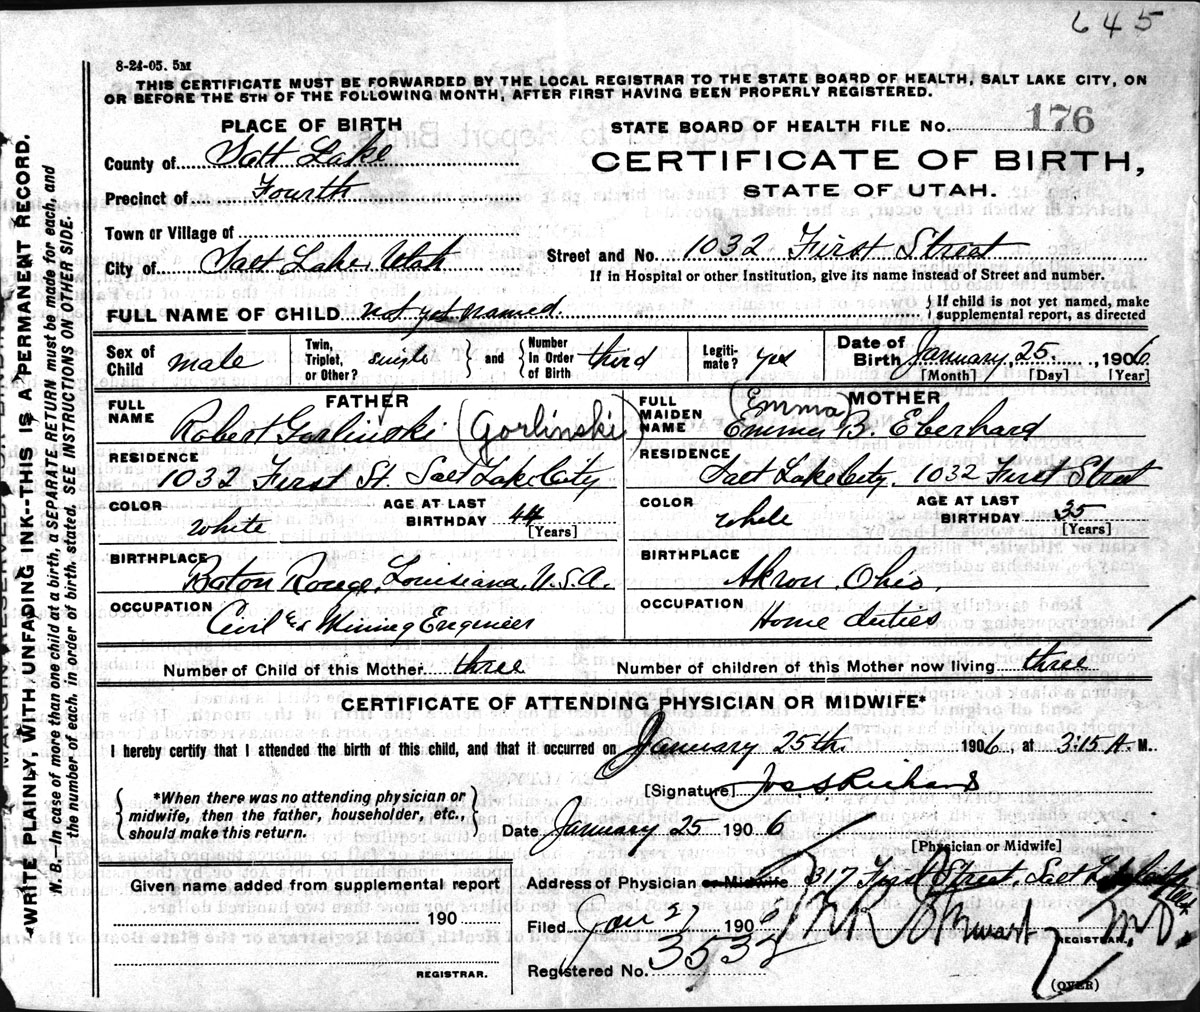 645
8-24-05. 5M
THIS CERTIFICATE MUST BE FORWARDED BY THE LOCAL REGISTRAR TO THE STATE BOARD OF HEALTH, SALT LAKE CITY, ON
OR BEFORE THE 5TH OF THE FOLLOWING MONTH, AFTER FIRST HAVING BEEN PROPERLY REGISTERED.
PLACE OF BIRTH
County of Salt Lake
Precinct of Fourth
Town or Village of
City of Salt Lake, Utah
STATE BOARD OF HEALTH FILE No. 176
CERTIFICATE OF BIRTH,
STATE OF UTAH.
Street and No. 1032 First Street
If in Hospital or other Institution, give its name instead of Street and number.
FULL NAME OF CHILD not yet named.
If child is not yet named, make
supplemental report, as directed
Sex of Child male
Twin, Triplet, or Other? single
and
Number in Order of Birth third
Legiti-mate? yes
Date of Birth January 25, 1906
[Month] [Day] [Year]
FATHER
FULL NAME Robert Gorlinski (Gorlinski)
RESIDENCE
1032 First St. Salt Lake City
COLOR white
AGE AT LAST BIRTHDAY 44
[Years]
BIRTHPLACE
Baton Rouge, Louisiana, U.S.A.
OCCUPATION
Civil & Mining Engineer
MOTHER
FULL MAIDEN NAME (Emma) Emma B. Eberhard
RESIDENCE
Salt Lake City. 1032 First Street
COLOR White
AGE AT LAST BIRTHDAY 35
[Years]
BIRTHPLACE
Akron, Ohio,
OCCUPATION
Home duties
Number of Child of this Mother three
Number of children of this Mother now living three
CERTIFICATE OF ATTENDING PHYSICIAN OR MIDWIFE*
I hereby certify that I attended the birth of this child, and that it occurred on January 25th. 1906 at 3:15 A. M.
*When there was no attending physician or
midwife, then the father, householder, etc.,
should make this return.
[Signature] Jos S Richards
Date January 25 1906
[Physician or Midwife]
Given name added from supplemental report
190
REGISTRAR.
Address of Physician or Midwife 317 First Street, Salt Lake City
Filed Jan 27 1906
REGISTRAR. M.D.
Registered No. 3532
(OVER)
WRITE PLAINLY, WITH UNFADING INK--THIS IS A PERMANENT RECORD.
N. B.—In case of more than one child at a birth, a SEPARATE RETURN must be made for each, and
the number of each, in order of birth, stated. SEE INSTRUCTIONS ON OTHER SIDE.